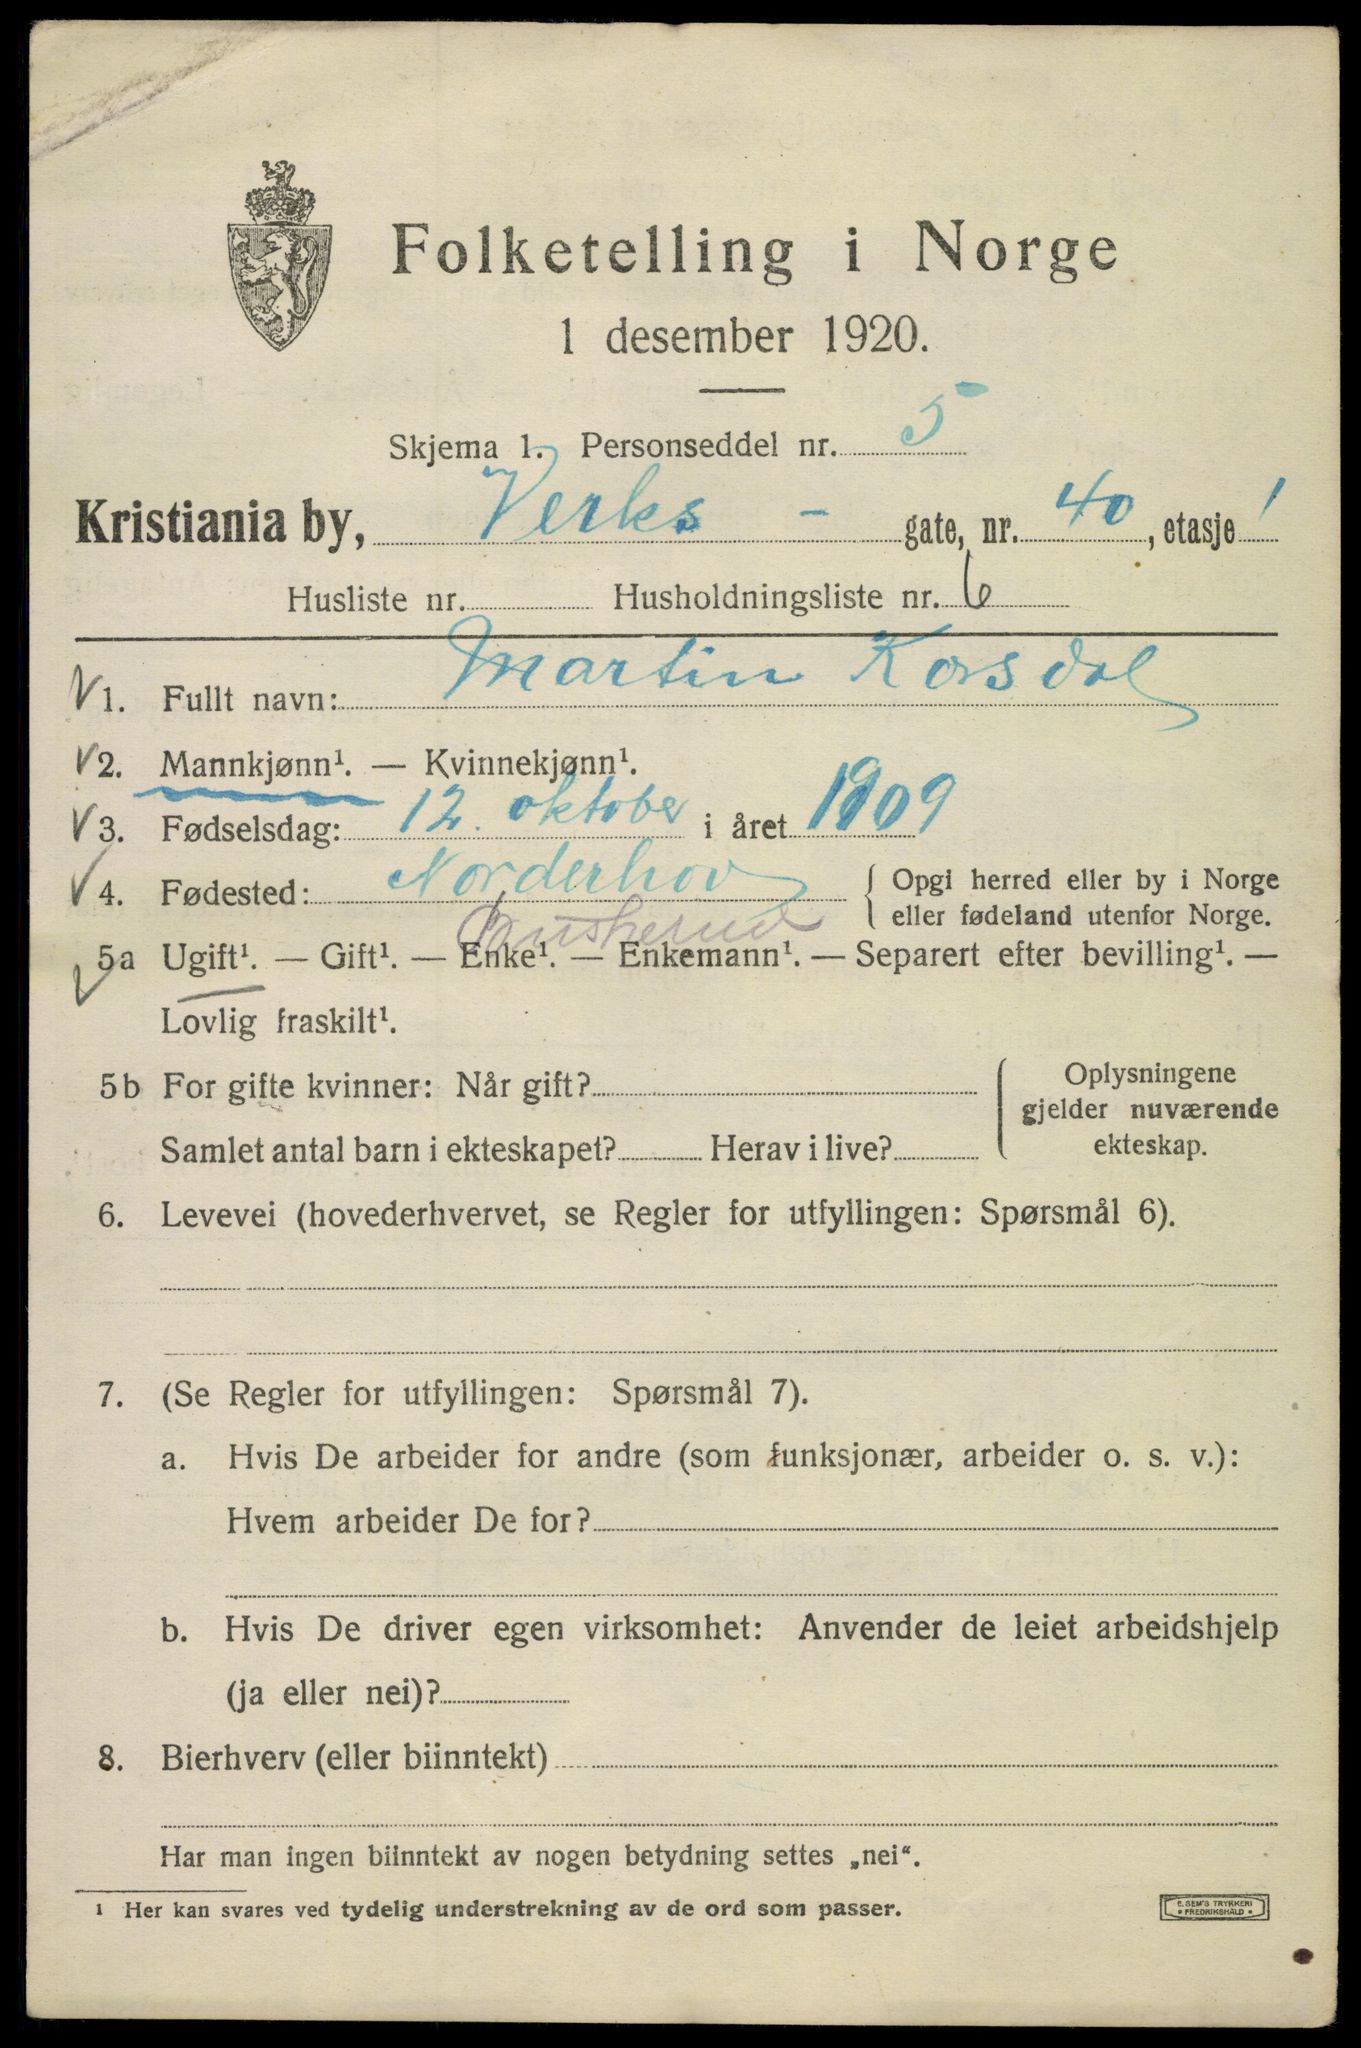 Folketelling i Norge
1 desember 1920.
Skjema 1. Personseddel nr. 5
Kristiania by, Verks - gate, nr. 40, etasje 1
Husliste nr. Husholdningsliste nr. 6
1. Fullt navn: Martin Korsdal
2. Mannkjønn¹. — Kvinnekjønn¹.
3. Fødselsdag: 12. oktober i året 1909
4. Fødested: Norderhov { Opgi herred eller by i Norge
eller fødeland utenfor Norge.
Buskerud
5a Ugift¹. — Gift¹. — Enke¹. — Enkemann¹. — Separert efter bevilling¹. —
Lovlig fraskilt¹.
5b For gifte kvinner: Når gift? { Oplysningene
gjelder nuværende
Samlet antal barn i ekteskapet? Herav i live? ekteskap.
6. Levevei (hovederhvervet, se Regler for utfyllingen: Spørsmål 6).
7. (Se Regler for utfyllingen: Spørsmål 7).
a. Hvis De arbeider for andre (som funksjonær, arbeider o. s. v.):
Hvem arbeider De for?
b. Hvis De driver egen virksomhet: Anvender de leiet arbeidshjelp
(ja eller nei)?
8. Bierhverv (eller biinntekt)
Har man ingen biinntekt av nogen betydning settes „nei“.
¹ Her kan svares ved tydelig understrekning av de ord som passer.
E. SEM'S TRYKKERI
* FREDRIKSHALD *